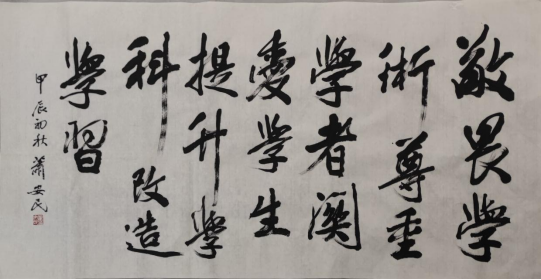 敬畏學
術尊重
學者關
愛學生
提升學
科改造
學習
甲辰初秋蕭安民